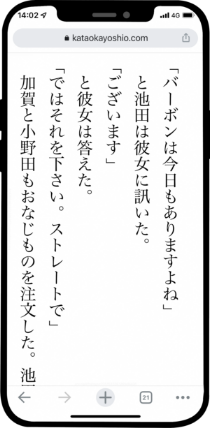 14:02
4G
kataokayoshio.com
「バーボンは今日もありますよね」
と池田は彼女に訊いた。
「ございます」
と彼女は答えた。
「ではそれを下さい。ストレートで」
加賀と小野田もおなじものを注文した。池
21